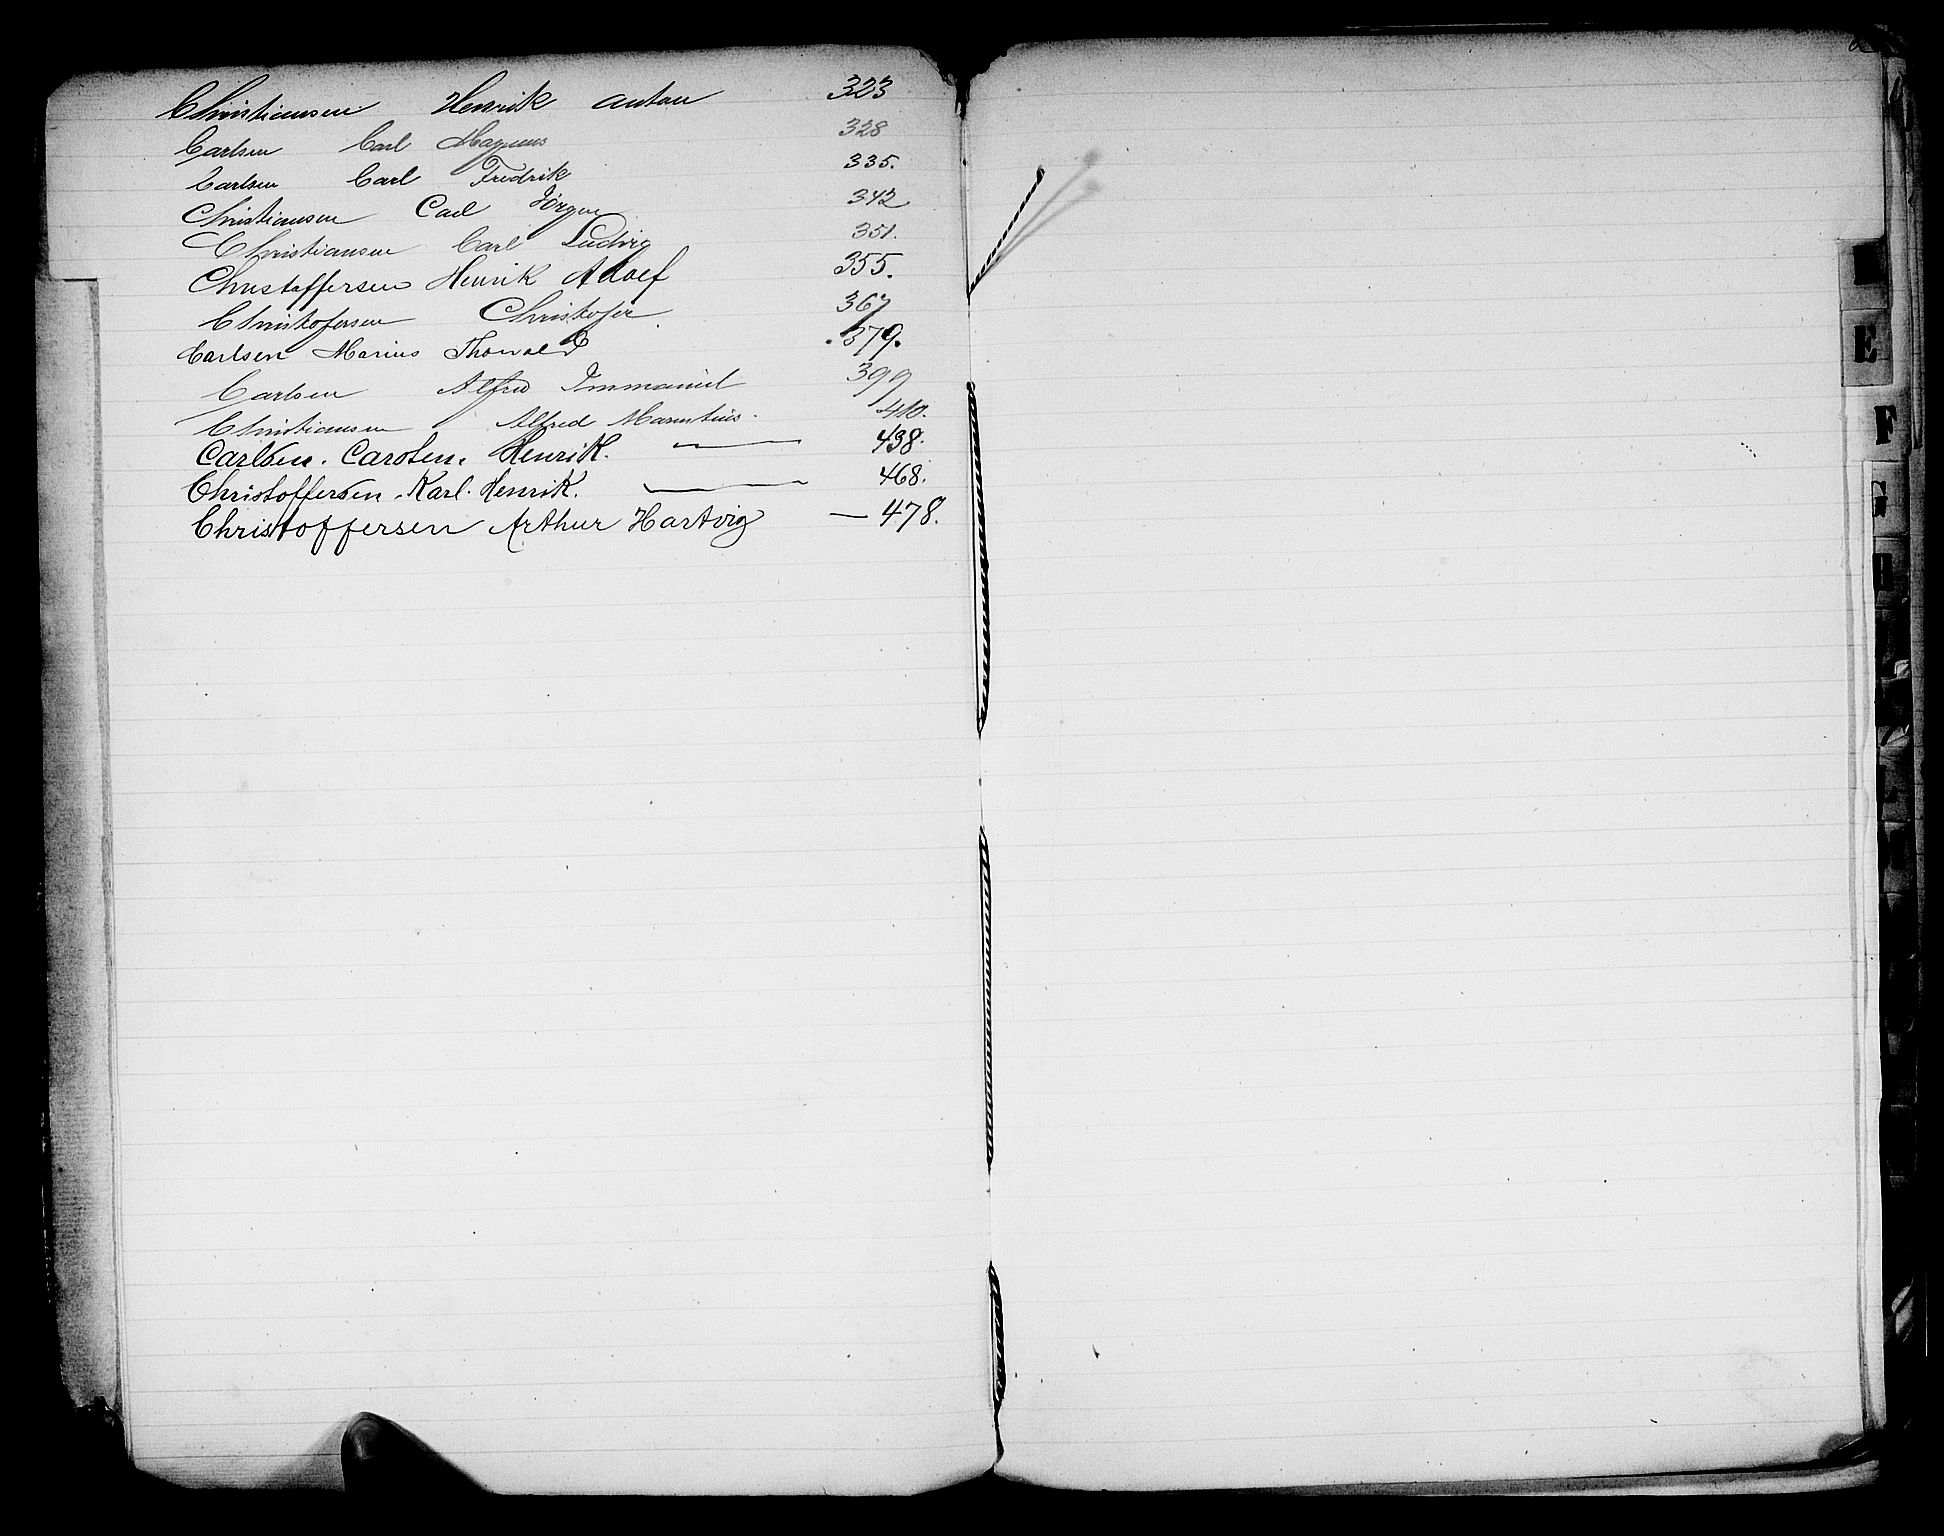 Christiansen Henrik Anton 323
Carlsen Carl Magnus 328
Carlsen Carl Fredrik 335.
Christiansen Carl Jörgen 342
Christiansen Carl Ludvig 351.
Christoffersen Henrik Adolf 355.
Christofersen Christofer 367
Carlsen Marius Thorvald 379.
Carlsen Alfred Immanuel 399
Christiansen Alfred 410.
Carlsen. Carsten. Henrik. — 438.
Christoffersen. Karl. Henrik. — 468.
Christoffersen Arthur Hartvig — 478.
E
F
G
H